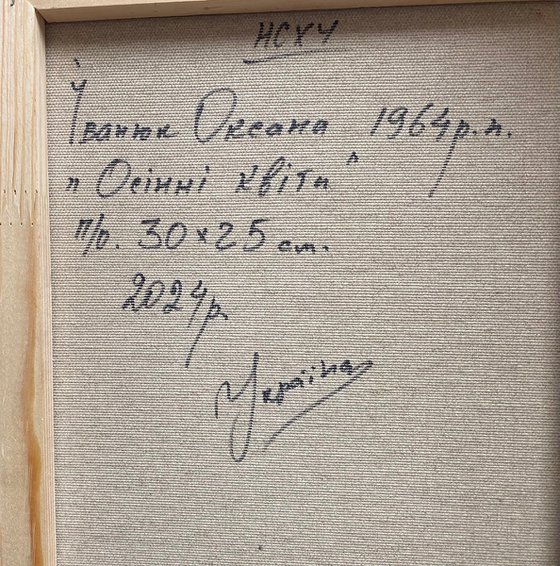 НСХУ
Іванюк Оксана 1964р.н.
"Осінні квіти"
п/о. 30×25 см.
2024р.
Україна